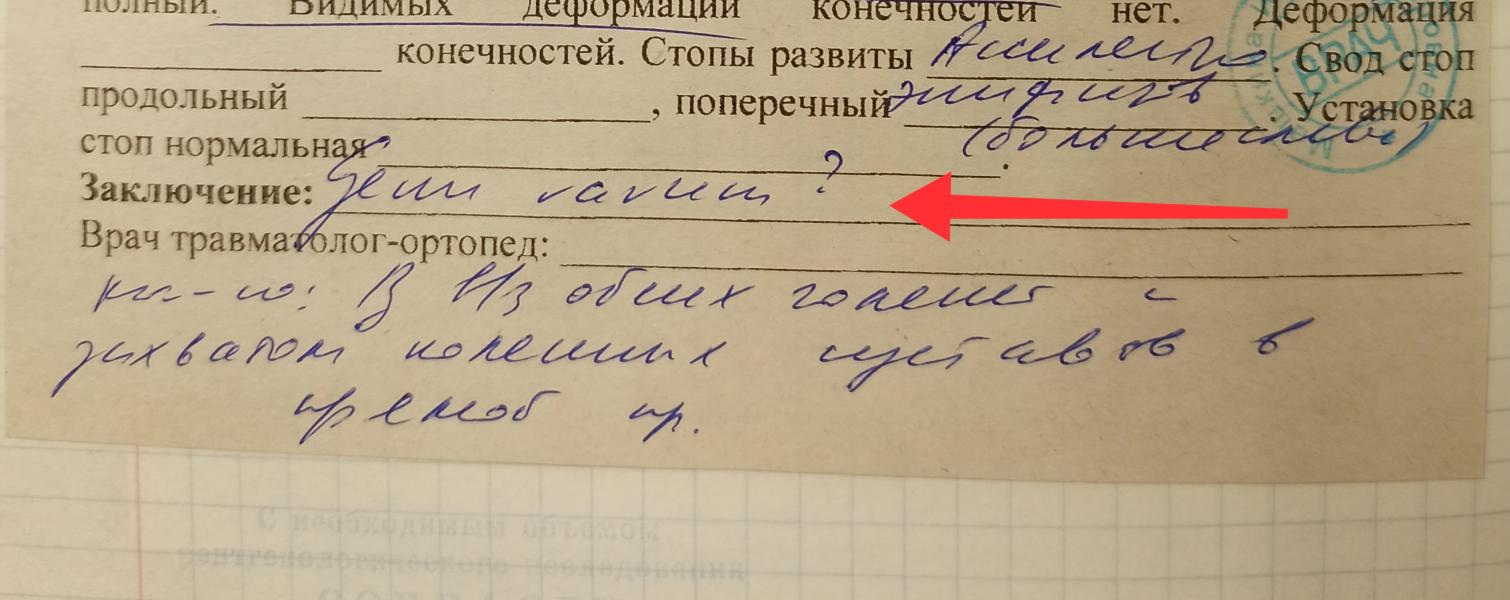 полный. Видимых деформаций конечностей нет. Деформация
конечностей. Стопы развиты . Свод стоп
продольный , поперечный . Установка
стоп нормальная (больше слева)
Заключение: Genu varum ?
Врач травматолог-ортопед:
В обеих голеней с
захватом коленных суставов в
пр.
С необходимым объемом
рентгенологического исследования
ВРАЧ